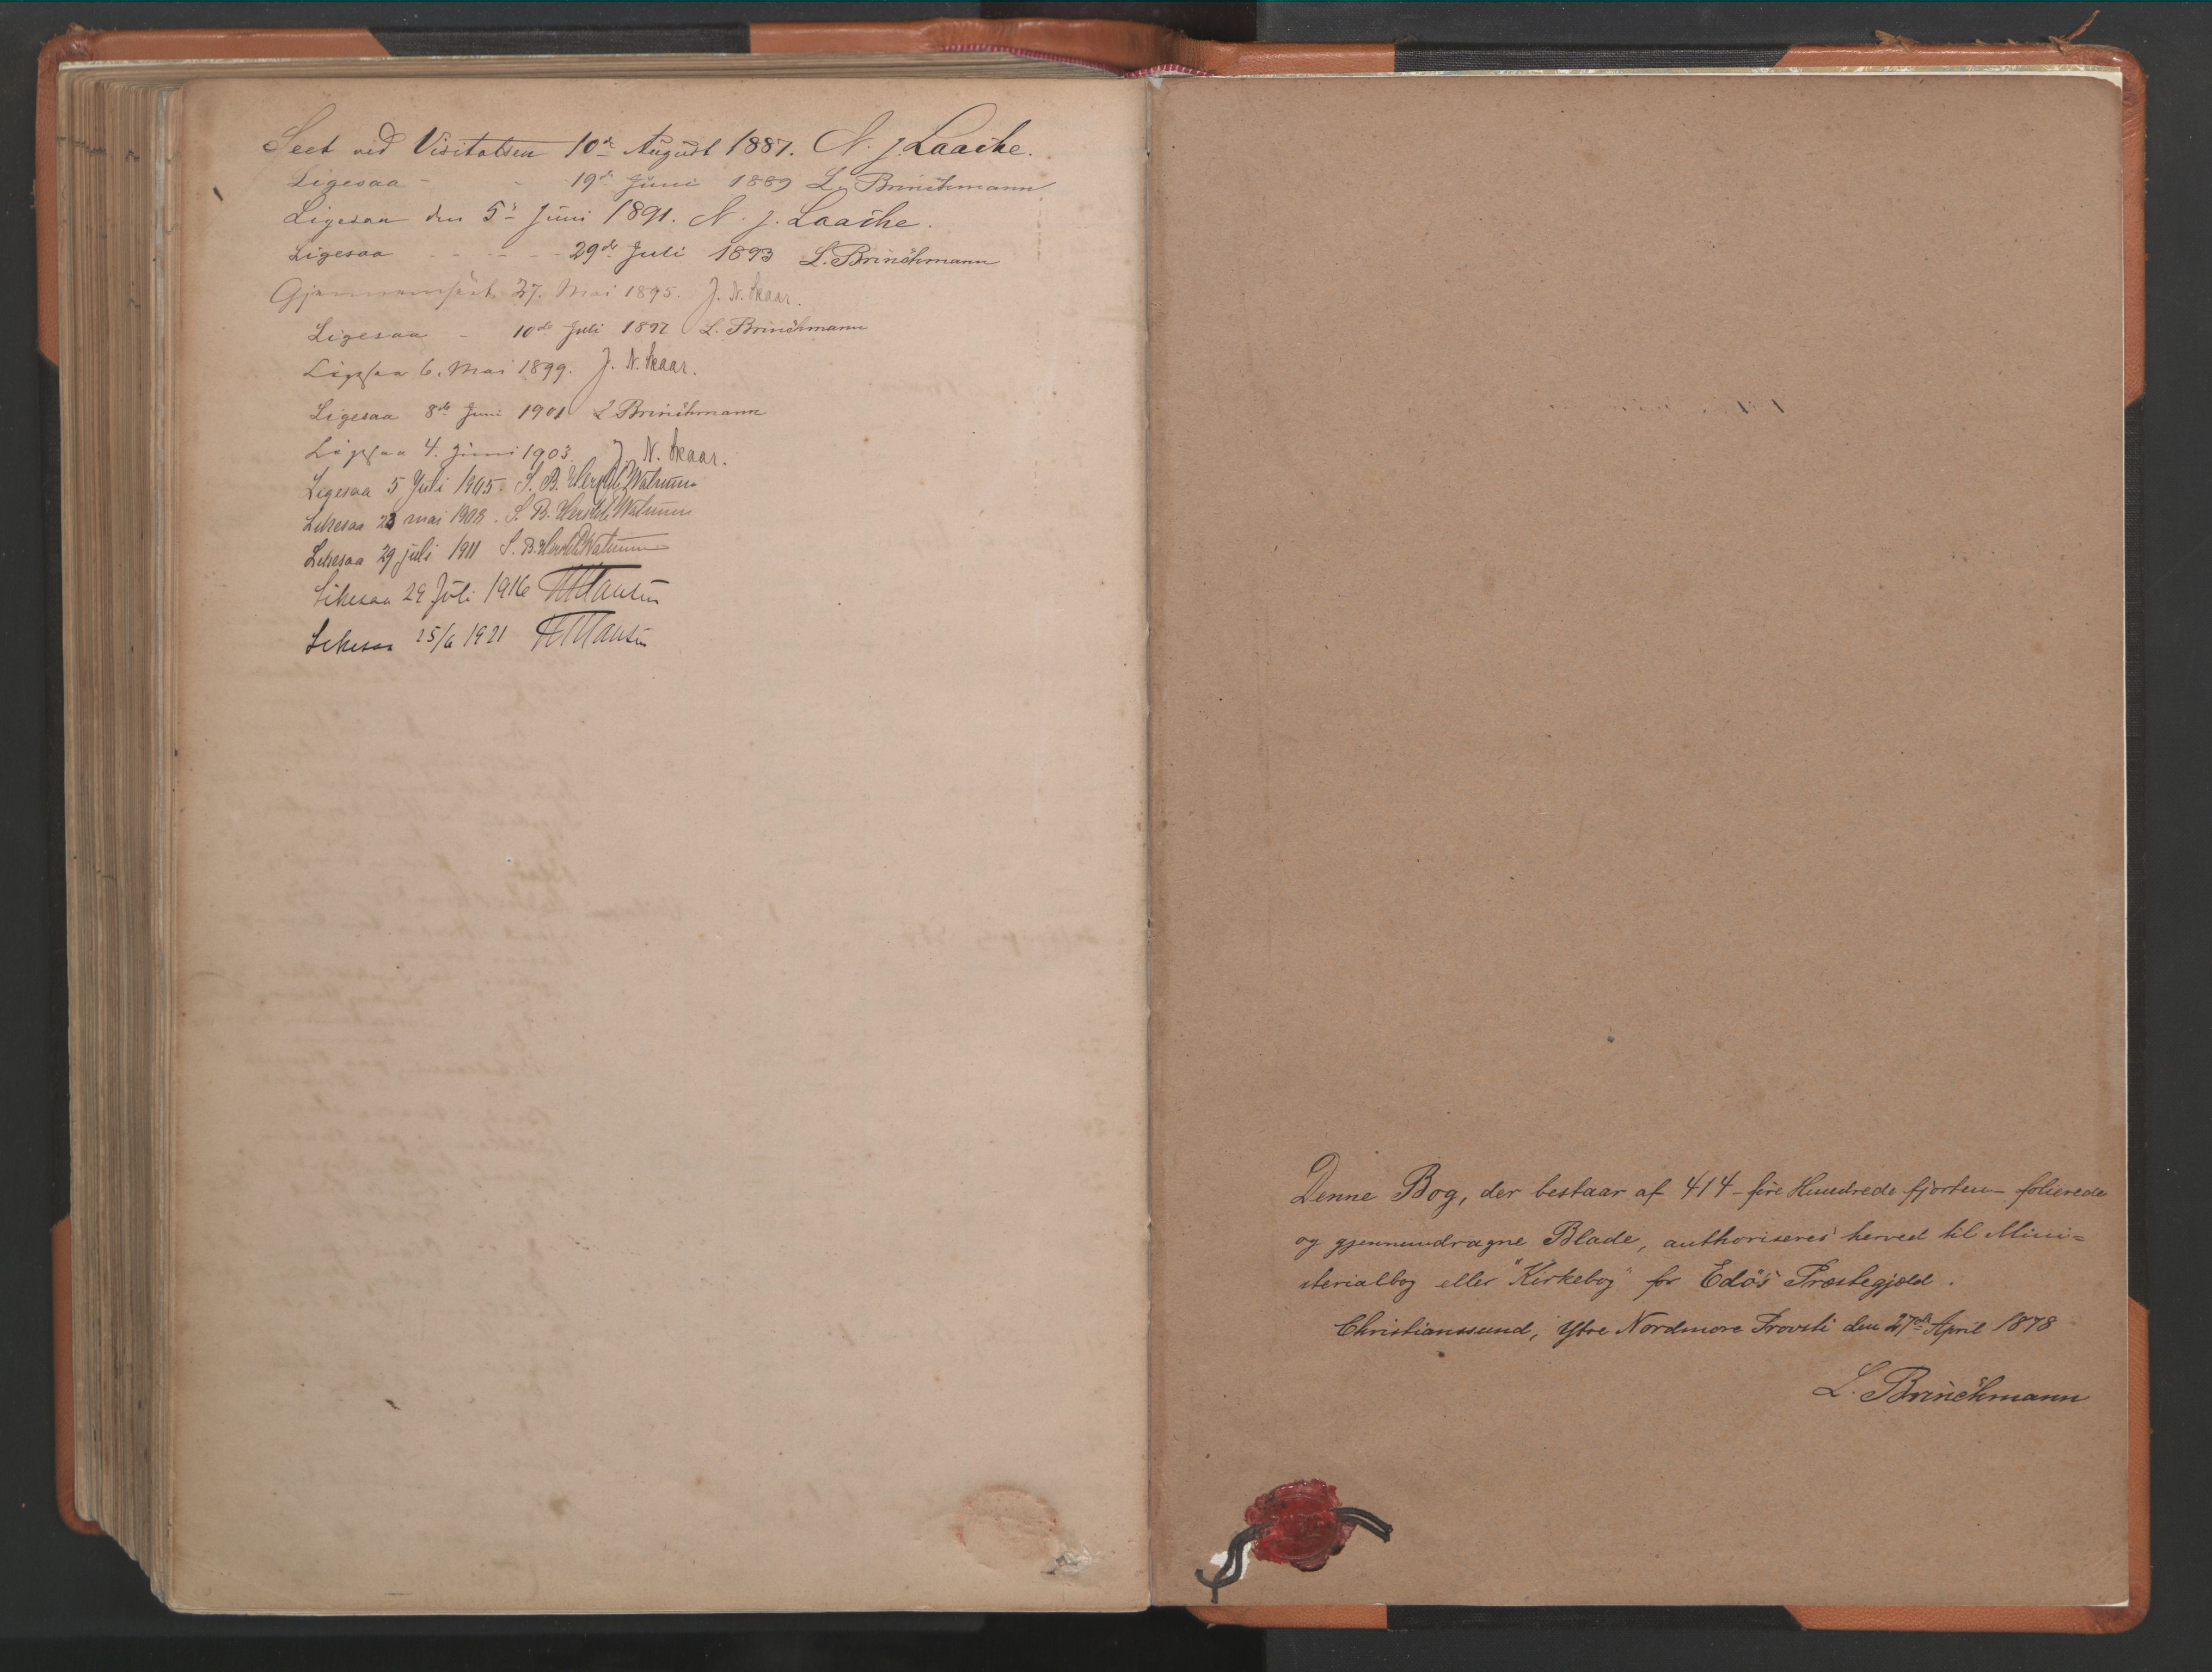 Seet ved Visitatsen 10de August 1887. N. J. Laache.
Ligesaa - - 19de Juni 1889 L. Brinchmann
Ligesaa den 5te Juni 1891. N. J. Laache.
Ligesaa - - - - - 29de Juli 1893 L. Brinchmann
Gjennemseet 27. Mai 1895. J. N. Skaar.
Ligesaa - 10de Juli 1897 L. Brinchmann
Ligesaa 6. Mai 1899. J. N. Skaar.
Ligesaa 8de Juni 1901 L Brinchmann
Ligesaa 4. Juni 1903. J. N. Skaar.
Ligesaa 5 Juli 1905. S. B.
Likesaa 23 mai 1908. S. B.
Likesaa 29 juli 1911 S. B.
Likesaa 29 Juli 1916
Likesaa 25/6 1921
Denne Bog, der bestaar af 414 - fire Hundrede fjorten - folierede
og gjennemdragne Blade, authoriseres herved til Mini=
sterialbog eller "Kirkebog" for Edö's Præstegjæld.
Christianssund, Ytre Nordmøre Provsti den 27de April 1878
L. Brinchmann